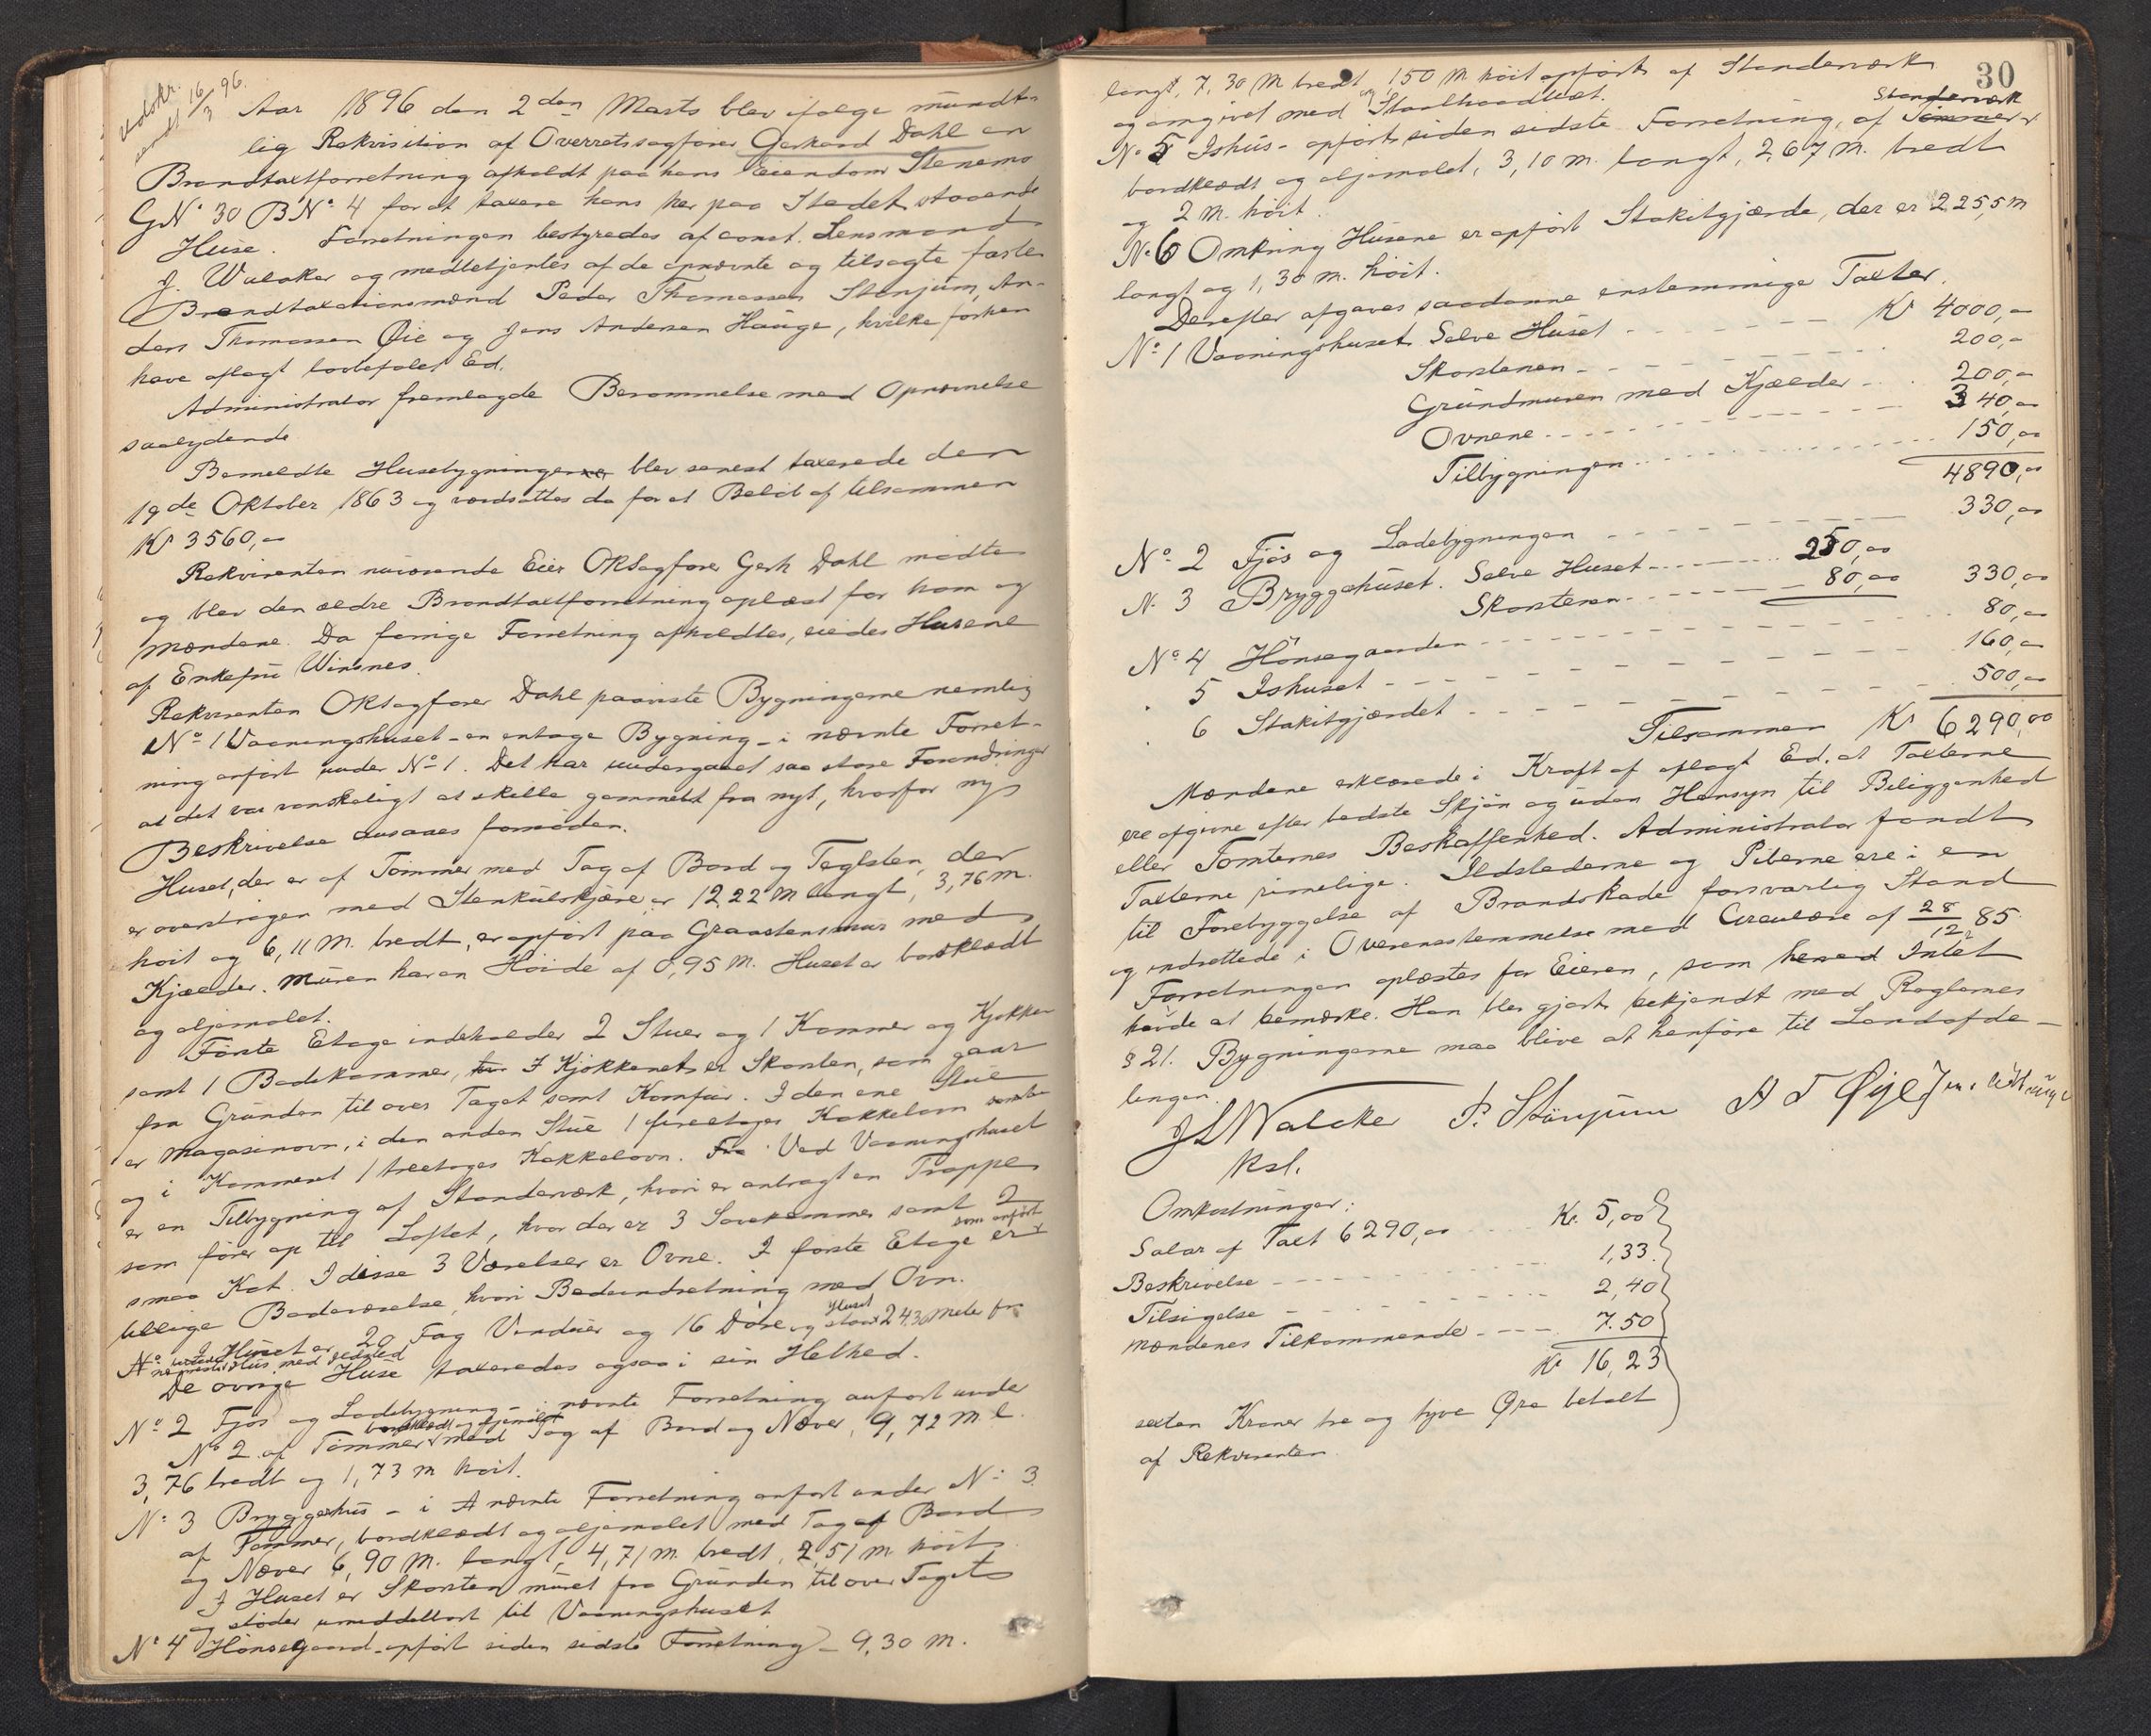 Udskr.
sendt 16/3 96.
Aar 1896 den 2den Marts blev ifølge mundt-
lig Rekvisition af Overretssagfører Gerhard Dahl en
Brandtaxtforretning afholdt paa hans Eiendom Stenemo
GN° 30 BN° 4 for at taxere hans her paa Stedet staaende
Huse. Forretningen bestyredes af const. Lensmand
J. Walaker og medbetjentes af de opnævnte og tilsagte faste
Brandtaxationsmænd Peder Thomassen Stenjum, An-
ders Thomassen Øie og Jens Andersen Hauge, hvilke forhen
have aflagt lovbefalet Ed.
Administrator fremlagde Berammelse med Opnævnelse
saalydende
Bemeldte Husebygninger blev senest taxerede den
19de Oktober 1863 og værdsattes da for et Beløb af tilsammen
Kr 3560,00
Rekvirenten nuværende Eier ORSagfører Gerh Dahl mødte
og blev den ældre Brandtaxtforretning oplæst for ham og
Mændene. Da forrige Forretning afholdtes, eiedes Husene
af Enkefru Winsnes.
Rekvirenten ORSagfører Dahl paaviste Bygningerne nemlig
N° 1 Vaaningshuset - en entage Bygning - i nævnte Forret-
ning anført under N° 1. Det har undergaaet saa store Forandringer
at det var vanskeligt at skille gammelt fra nyt, hvorfor ny
Beskrivelse ansaaes fornøden.
Huset, der er af Tømmer med Tag af Bord og Tagsten, der
er overstrøgen med Stenkulstjære, er 12,22 M langt, 3,76 M.
høit og 6,11 M. bredt, er opført paa Graastensmur med
Kjælder. Muren har en Høide af 0,95 M. Huset er bordklædt
og oljemalet.
Første Etage indeholder 2 Stuer og 1 Kammer og Kjøkken
samt 1 Badekammer, I Kjøkkenet er Skorsten, som gaar
fra Grunden til over Taget samt Komfur. I den ene Stue
er Magasinovn, i den anden Stue 1 fireetages Kakkelovn samt
og i Kammeret 1 treetages Kakkelovn. Ved Vaaningshuset
er en Tilbygning af Standerværk, hvori er anbragt en Trappe
som fører op til Loftet, hvor der er 3 Sovekammer samt 2
smaa Kot. I disse 3 Værelser er Ovne. I første Etage er som anført
tillige Badeværelse, hvori Badeindretning med Ovn.
I Huset er 20 Fag Vinduer og 16 Døre og Huset staar 24.36 Meter fra
nærmeste Hus med Ildsted
De øvrige Huse taxeredes ogsaa i sin Helhed.
N° 2 Fjøs og Ladebygning - i nævnte Forretning anført under
N° 2 af Tømmer bordklædt og oljemalet med Tag af Bord og Næver, 9,72 M. l.
3,76 bredt og 1,73 m høit.
N° 3 Bryggerhus - i nævnte Forretning anført under N° 3
af Tømmer, bordklædt og oljemalet med Tag af Bord
og Næver 6,90 M. langt, 4,71 M. bredt, 2,51 M. høit
I Huset er Skorsten muret fra Grunden til over Taget
og støder umiddelbart til Vaaningshuset
N° 4 Hønsegaard - opført siden sidste Forretning - 9,30 M.
30
langt, 7,30 M bredt, 1,50 M høit opført af Standerværk
og omgivet med Staaltraadnæt.
N° 5 Ishus - opført siden sidste Forretning, af Tømmer Standerværk
bordklædt og oljemalet, 3,10 m. langt, 2,67 M. bredt
og 2 M. høit.
N° 6 Omkring Husene er opført Stakitgjærde, der er 225,5 M
langt og 1,30 m. høit.
Derefter afgaves saadanne enstemmige Taxter.
N° 1 Vaaningshuset Selve Huset - - - Kr 4000,00
Skorstenen - - - 200,00
Grundmuren med Kjælder - - - 200,00
Ovnene - - - 340,00
Tilbygningen - - - 150,00
4890,00
N° 2 Fjøs og Ladebygningen - - - 330,00
N. 3 Bryggehuset. Selve Huset - - - 250,00
Skorstenen - - - 80,00 330,00
N° 4 Hønsegaarden - - - 80,00
5 Ishuset - - - 160,00
6 Stakitgjærdet - - - 500,00
Tilsammen Kr 6290,00
Mændene erklærede i Kraft af aflagt Ed, at Taxterne
ere afgivne efter bedste Skjøn og uden Hensyn til Beliggenhed
eller Tomternes Beskaffenhed. Administrator fandt
Taxterne rimelige. Ildstederne og Piberne ere i en
til Forebyggelse af Brandskade forsvarlig Stand
og indrettede i Overensstemmelse med Circulære af 28/12 85.
Forretningen oplæstes for Eieren, som Intet
havde at bemærke. Han blev gjort bekjendt med Reglernes
§ 21. Bygningerne maa blive at henføre til Landafde-
lingen.
J L Walaker P. Stönjum A T Øije
Kst.
Omkostninger:
Salær af Taxt 6290,00 - - - Kr. 5,00
Beskrivelse - - - 1,33.
Tilsigelse - - - 2,40
Mændenes Tilkommende - - - 7.50
Kr 16,23
sexten Kroner tre og tyve Øre betalt
af Rekvirenten.